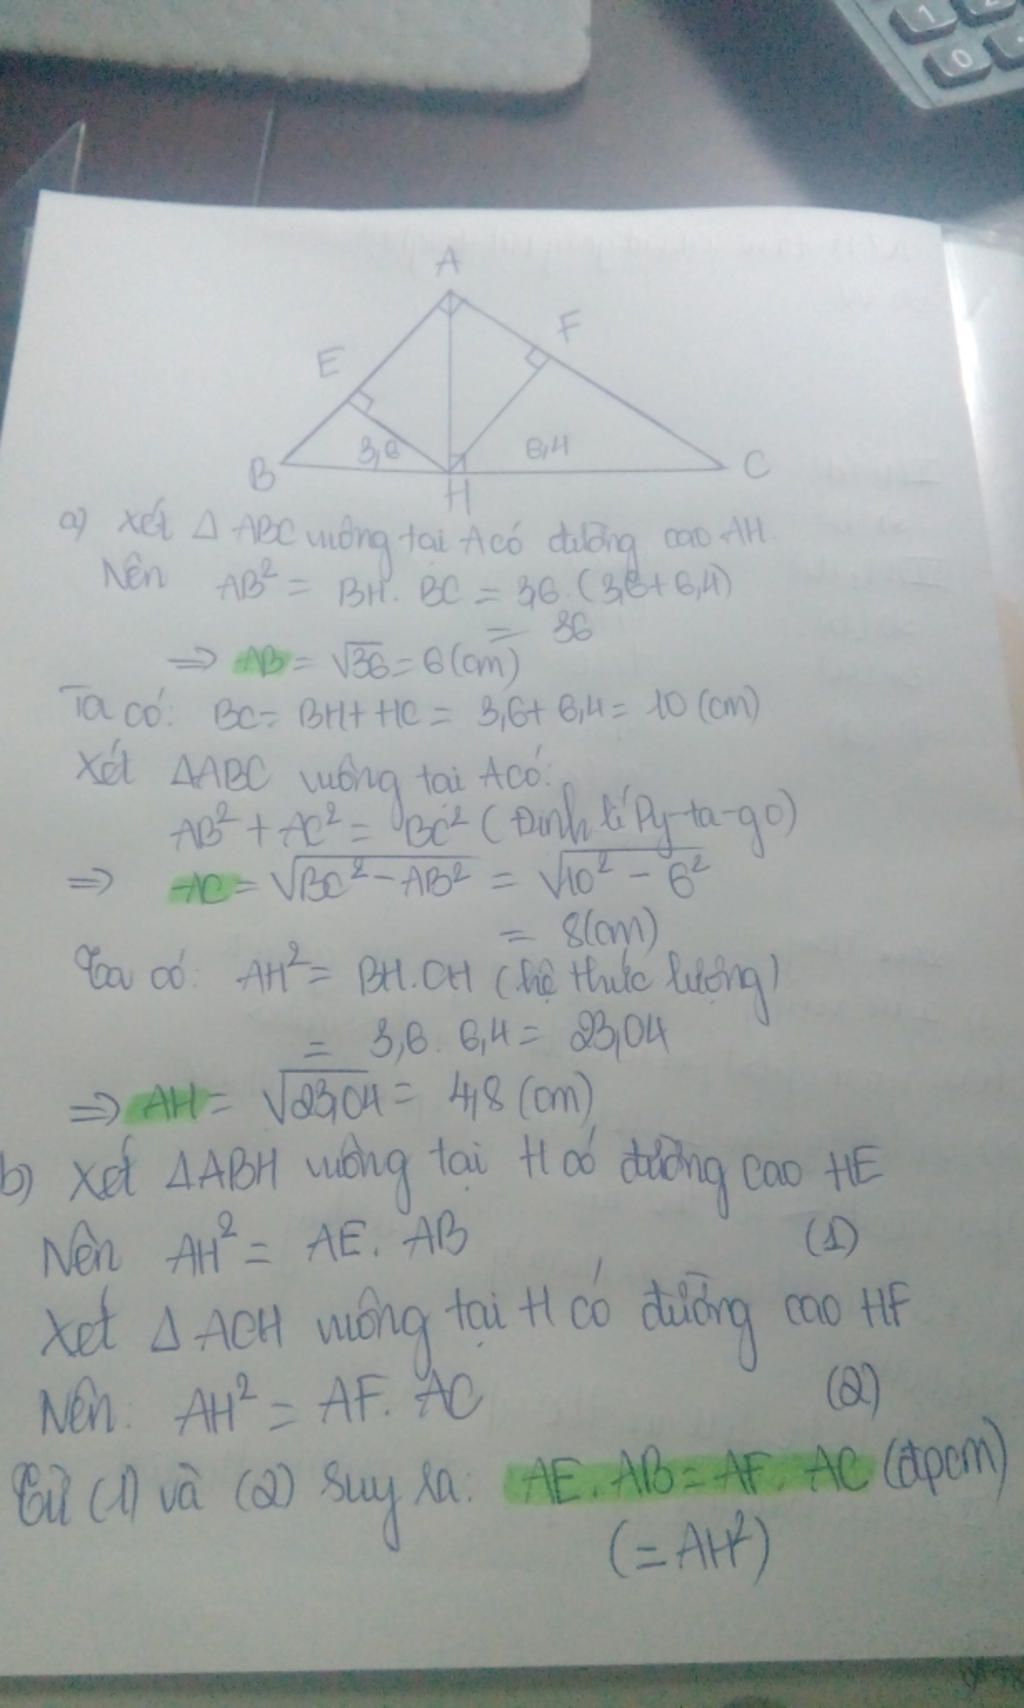 1
2
0
A
E
F
B
3,6
6,4
C
H
a) Xét △ ABC vuông tại A có đường cao AH
Nên AB² = BH. BC = 3,6. (3,6+6,4)
= 36
=> AB = √36 = 6 (cm)
Ta có: BC = BH + HC = 3,6 + 6,4 = 10 (cm)
Xét △ABC vuông tại A có:
AB² + AC² = BC² (Định lí Py-ta-go)
=> AC = √BC² - AB² = √10² - 6²
= 8(cm)
Ta có: AH² = BH.CH (hệ thức lượng)
= 3,6. 6,4 = 23,04
=> AH = √23,04 = 4,8 (cm)
b) Xét △ABH vuông tại H có đường cao HE
Nên AH² = AE. AB (1)
Xét △ ACH vuông tại H có đường cao HF
Nên: AH² = AF. AC (2)
Từ (1) và (2) suy ra: AE. AB = AF. AC (đpcm)
(= AH²)